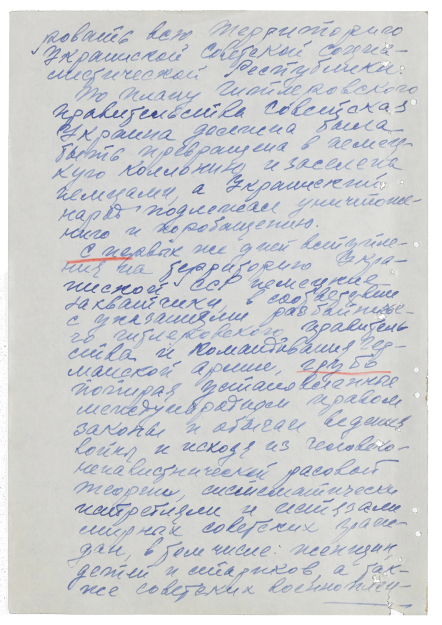 ровать всю территорию
Украинской Советской социа-
листической Республики.
По плану гитлеровского
правительства Советская
Украина должна была
быть превращена в немец-
кую колонию и заселена
немцами, а Украинский
народ подлежал уничтоже-
нию и порабощению.
С первых же дней вступле-
ния на территорию Укра-
инской ССР немецкие
захватчики, в соответствии
с указаниями разбойничье-
го гитлеровского правитель-
ства и командования гер-
манской армии, грубо
попирая установленные
международным правом
законы и обычаи ведения
войны и исходя из человеко-
ненавистнической расовой
теории, систематически
истребляли и истязали
мирных советских граж-
дан, в том числе: женщин,
детей и стариков а так-
же советских военноплен-